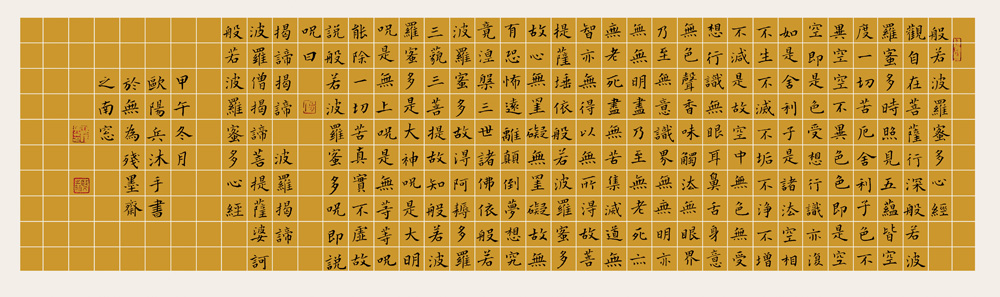 般若波羅蜜多心經
觀自在菩薩行深般若波
羅蜜多時照見五蘊皆空
度一切苦厄舍利子色不
異空空不異色色即是空
空即是色受想行識亦復
如是舍利子是諸法空相
不生不滅不垢不淨不增
不減是故空中無色無受
想行識無眼耳鼻舌身意
無色聲香味觸法無眼界
乃至無意識界無無明亦
無無明盡乃至無老死亦
無老死盡無苦集滅道無
智亦無得以無所得故菩
提薩埵依般若波羅蜜多
故心無罣礙無罣礙故無
有恐怖遠離顛倒夢想究
竟湼槃三世諸佛依般若
波羅蜜多故得阿耨多羅
三藐三菩提故知般若波
羅蜜多是大神呪是大明
呪是無上呪是無等等呪
能除一切苦真實不虛故
說般若波羅蜜多呪即說
呪曰
揭諦揭諦 波羅揭諦
波羅僧揭諦菩提薩婆訶
般若波羅蜜多心經
甲午冬月
歐陽兵沐手書
於無為殘墨齋
之南窓